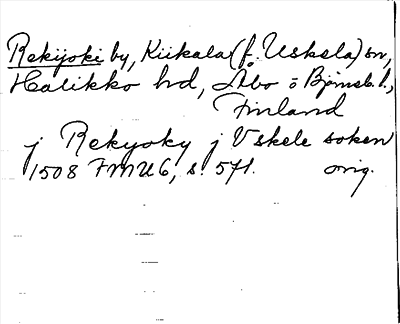 Rekijoki by, Kiikala (f. Uskela) sn,
Halikko hd, Åbo o Björneb. l.,
Finland
j Rekyoky j Vskele soken
1508 FMU 6, s. 571. orig.